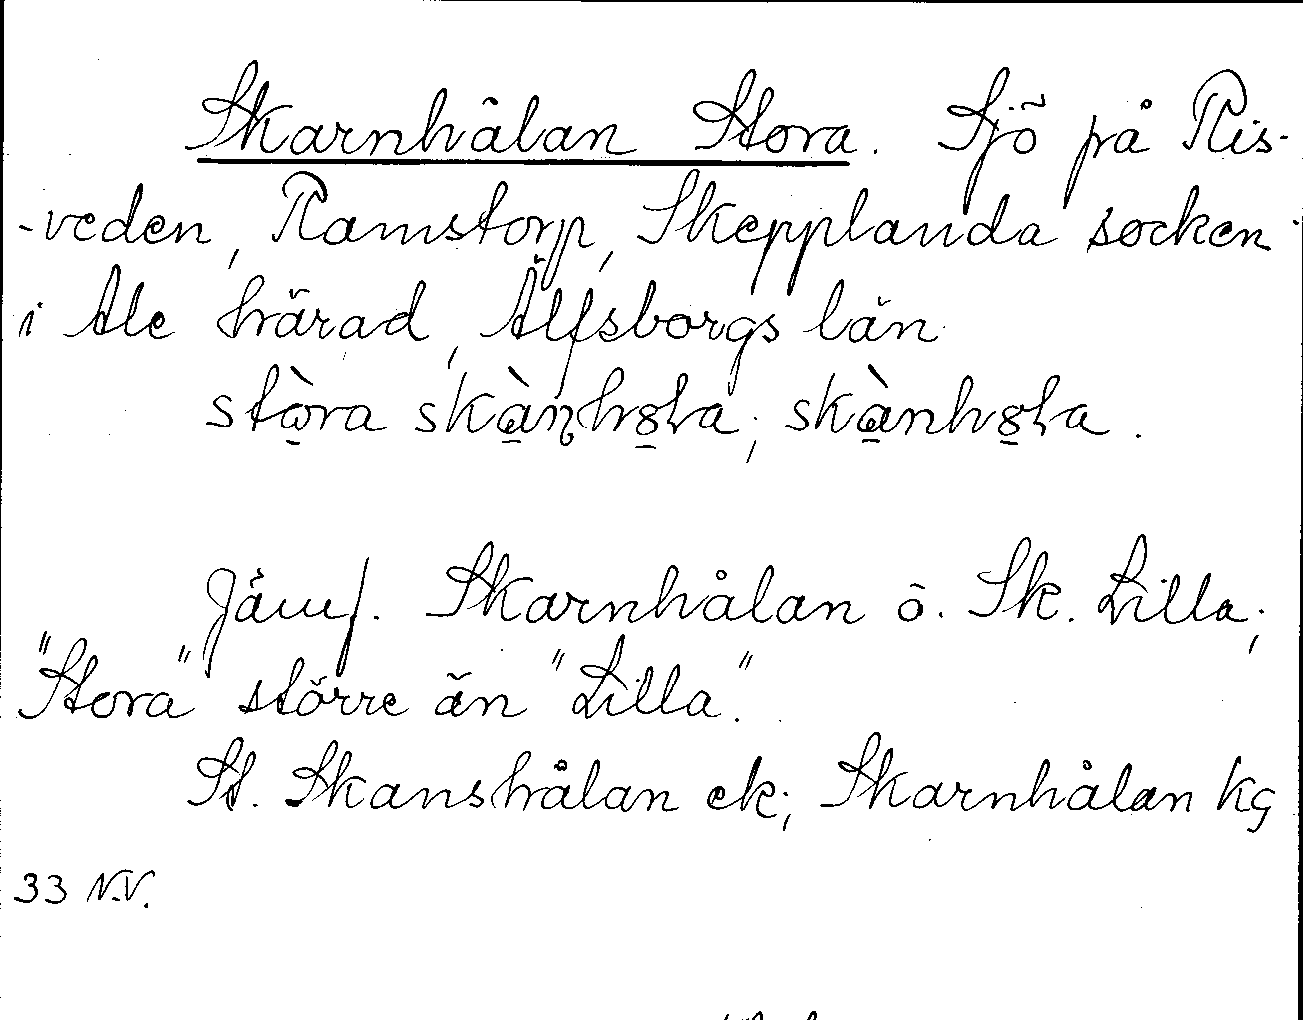 Skarnhålan Stora. Sjö på Ris-
-veden, Ramstorp, Skepplanda socken
i Ale härad, Älfsborgs län
Jämf. Skarnhålan o. Sk. Lilla;
"Stora" större än "Lilla".
St. Skanshålan ek; Skarnhålan kg
33 N.V.